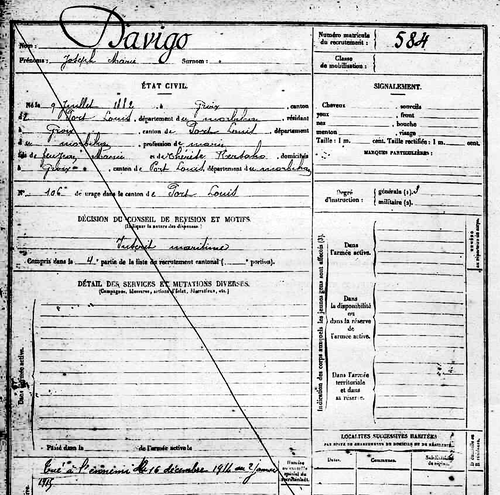 Nom :
Davigo
Prénoms : Joseph Marie Surnom :
Numéro matricule
du recrutement : 584
Classe
de mobilisation :
ÉTAT CIVIL.
Né le 9 Juillet 1882, à Groix, canton
de Port Louis, département d u morbihan, résidant
à Groix, canton de Port Louis, département
d u morbihan, profession de marin
fils de feu Marie et de Thérèse, domiciliés
à Groix, canton de Port Louis, département d u morbihan
N° 106 de tirage dans le canton de Port Louis
DÉCISION DU CONSEIL DE RÉVISION ET MOTIFS.
(Indiquer la nature des dispenses)
Inscrit maritime
Compris dans la 4e partie de la liste du recrutement cantonal ( portion).
DÉTAIL DES SERVICES ET MUTATIONS DIVERSES.
(Campagnes, blessures, actions d'éclat, décorations, etc.)
Dans l'armée active.
Passé dans
de l'armée active le
Tué à l'ennemi le 16 décembre 1914 au 2 janvier
1915
SIGNALEMENT.
Cheveux sourcils
yeux front
nez bouche
menton visage
Taille : 1 m. cent. Taille rectifiée : 1 m. cent.
MARQUES PARTICULIÈRES :
Degré
d'instruction :
générale (1).
militaire (2).
Indication des corps auxquels les jeunes gens sont affectés (3).
Dans
l'armée active.
Dans
la disponibilité
ou
dans la réserve
de
l'armée active.
Dans l'armée
territoriale
et dans
sa réserve.
LOCALITÉS SUCCESSIVES HABITÉES
Dates.
Communes.